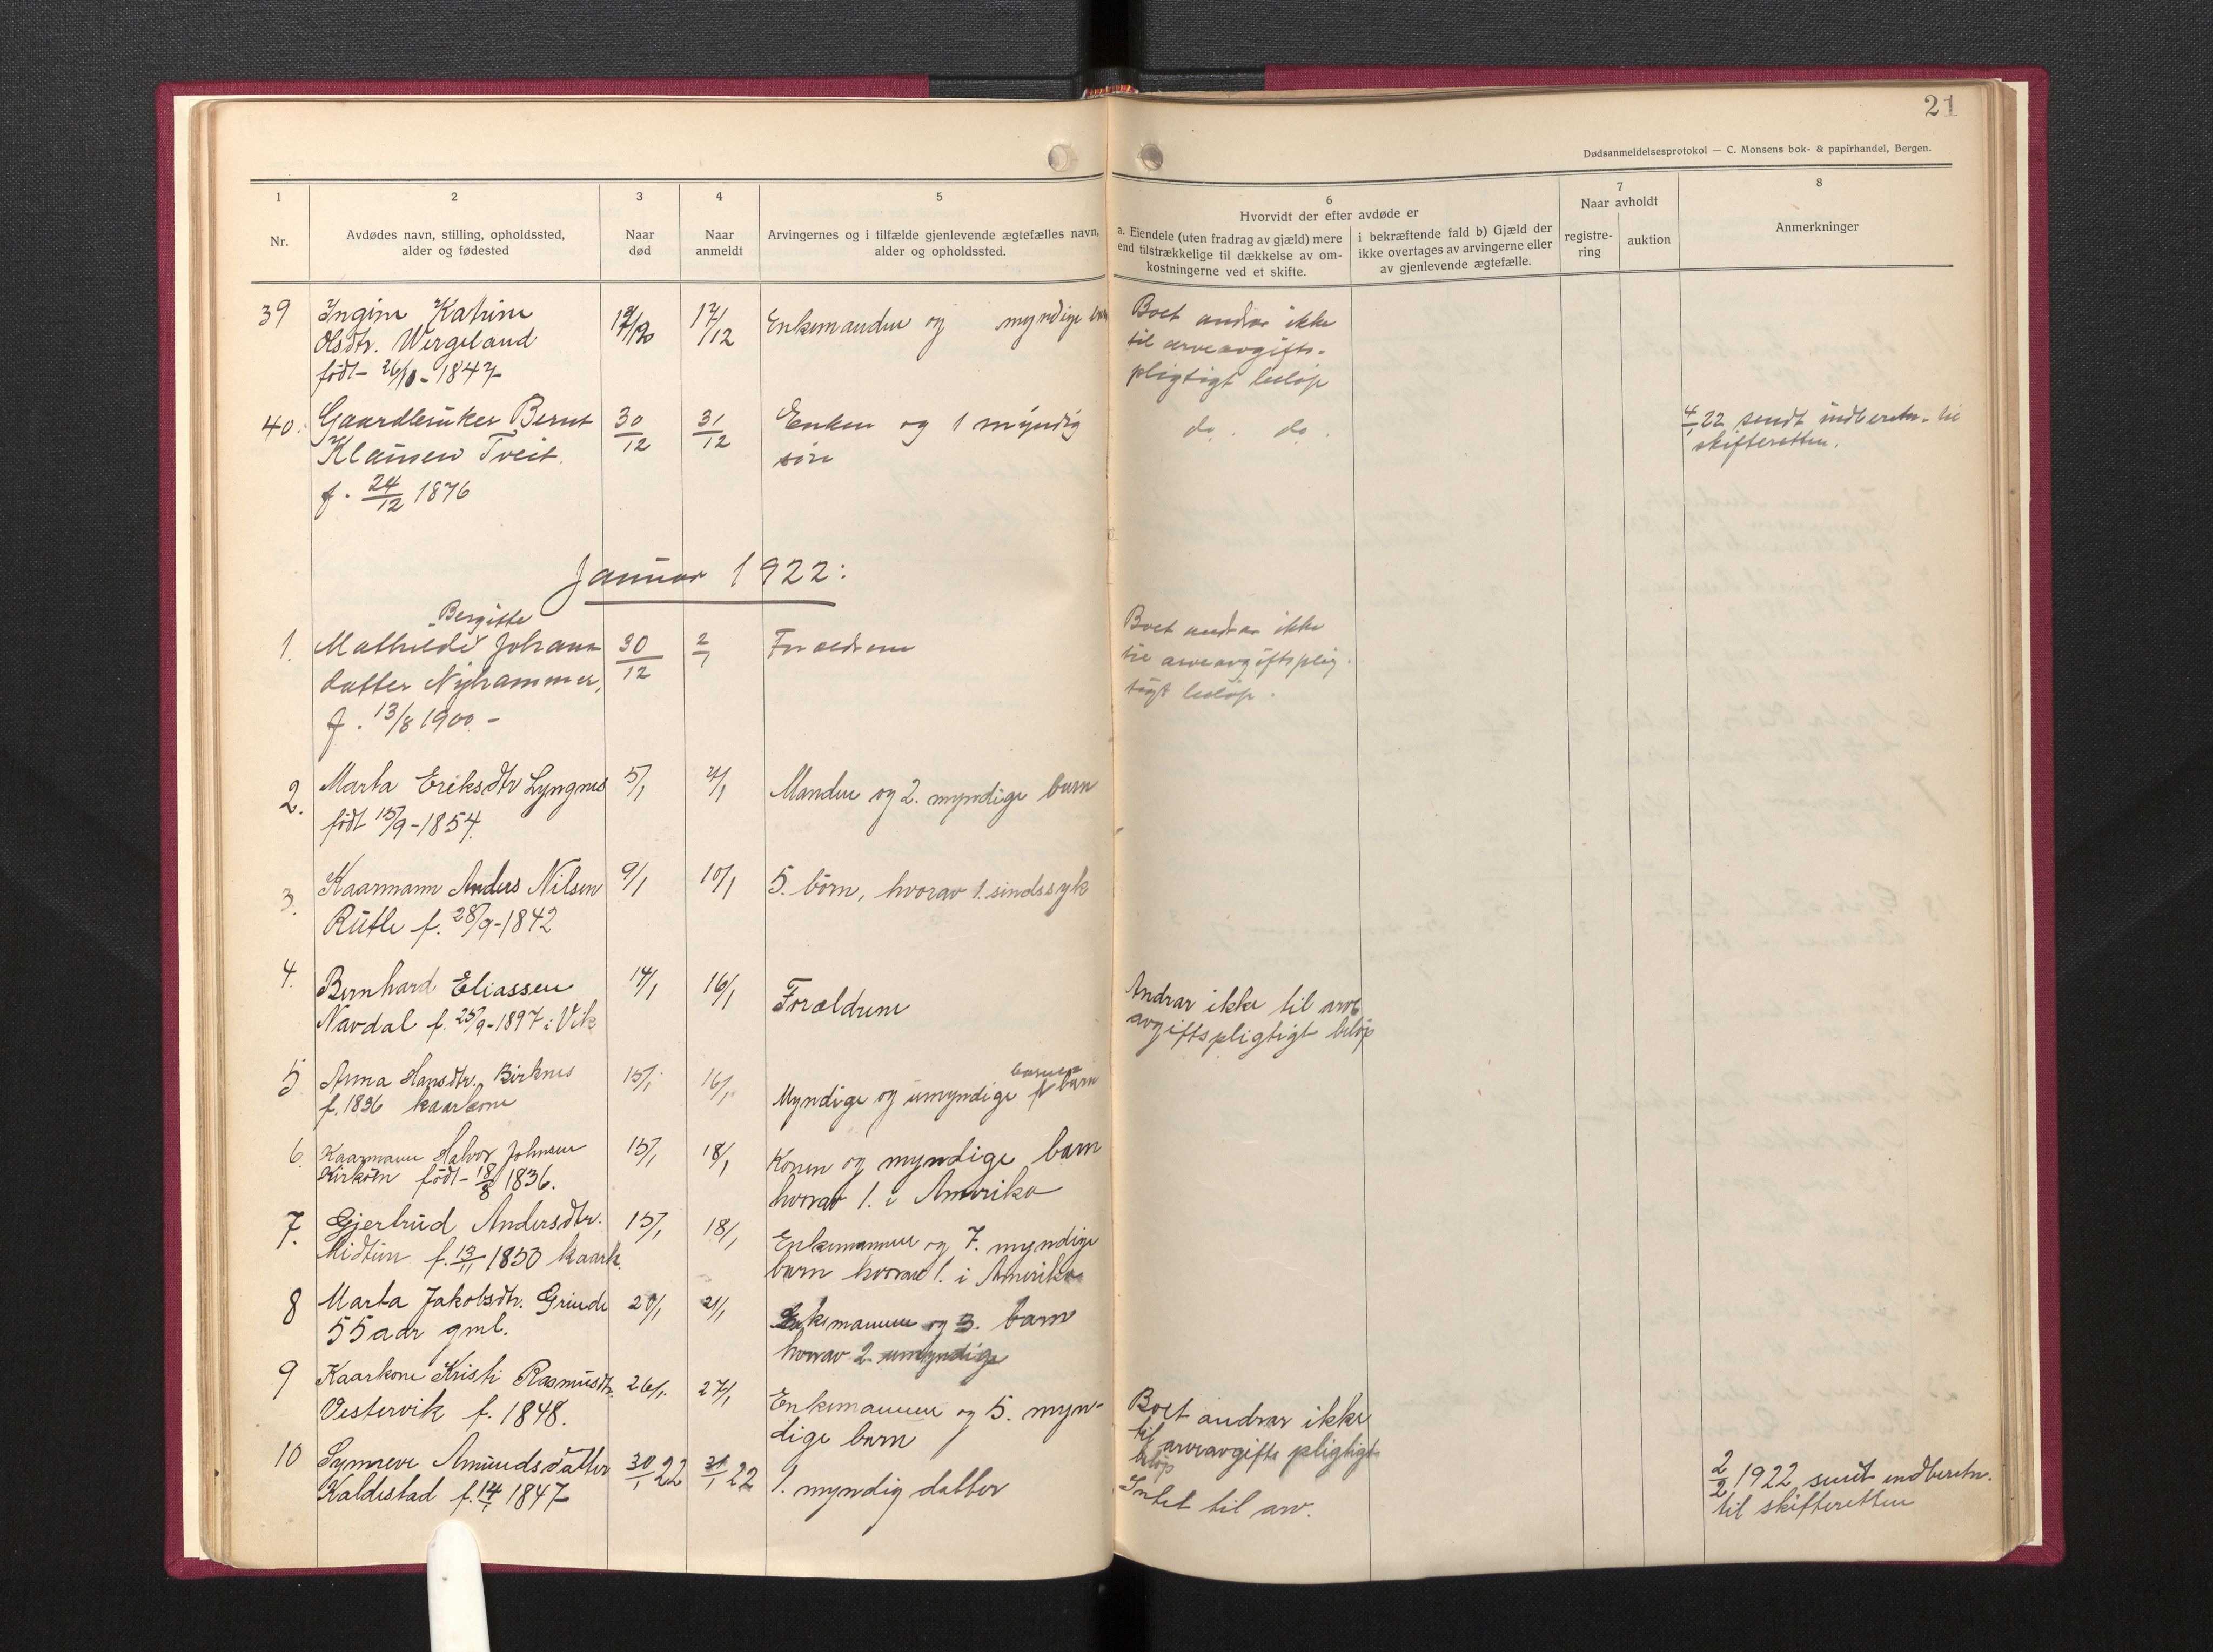 21
Dødsanmeldelsesprotokol — C. Monsens bok- & papirhandel, Bergen.
1 2 3 4 5 6 7 8
Nr.
Avdødes navn, stilling, opholdssted,
alder og fødested
Naar
død
Naar
anmeldt
Arvingernes og i tilfælde gjenlevende ægtefælles navn,
alder og opholdssted.
Hvorvidt der efter avdøde er
a. Eiendele (uten fradrag av gjæld) mere
end tilstrækkelige til dækkelse av om-
kostningerne ved et skifte.
i bekræftende fald b) Gjæld der
ikke overtages av arvingerne eller
av gjenlevende ægtefælle.
Naar avholdt
registre-
ring
auktion
Anmerkninger
39 Ingine Katrine
Olsdtr. Wergeland
født- 1847
17/12 Enkemanden og myndige barn
Boet andrar ikke
til arveavgifts-
pligtigt beløp
40. Gaardbruker Bernt
Klausen Tveit
f. 24/12 1876
30/12 31/12 Enken og 1 myndig
søn
do. do.
4/1 22 sendt indberetn. til
skifteretten.
Januar 1922:
Bergitte
1. Mathilde Johans
datter Nyhammer,
f. 13/8 1900 -
30/12 2/1 Forældrene
Boet andrar ikke
til arveavgiftsplig-
tigt beløp.
2. Marta Eriksdtr Lyngnes
født 15/9-1854.
5/1 Manden og 2. myndige barn
3. Kaarmann Anders Nilsen
Rutle f. 28/9-1842
9/1 10/1 5. børn, hvorav 1. sindssyk
4. Bernhard Eliassen
Navdal f. 25/9-1897 i Vik
14/1 16/1 Forældrene
Andrar ikke til arve
avgiftspligtigt beløp
5 Anna Hansdtr. Birknes
f. 1836 kaarkone
15/1 16/1 Myndige og umyndige barn
6. Kaarmann Halvor Johnsen
Kirkøen født- 18/8 1836.
15/1 18/1 Konen og myndige barn
hvorav 1. i Amerika
7. Gjertrud Andersdtr.
Midtun f. 13/11 1850 kaark.
15/1 18/1 Enkemannen og 7. myndige
barn hvorav 1. i Amerika
8 Marta Jakobsdtr. Grinde
55 aar gml.
20/1 21/1 Enkemannen og 3. barn
hvorav 2. umyndige
9 Kaarkone Kristi Rasmusdtr.
Vestervik f. 1848.
26/1. 27/1 Enkemannen og 5. myn-
dige barn
Boet andrar ikke
til arveavgifts pligtigt
beløp
10 Synneve Amundsdatter
Kaldestad f. 1847
30/1 22 31/1 22 1. myndig datter
Intet til arv.
2/2 1922 sendt indberetn.
til skifteretten